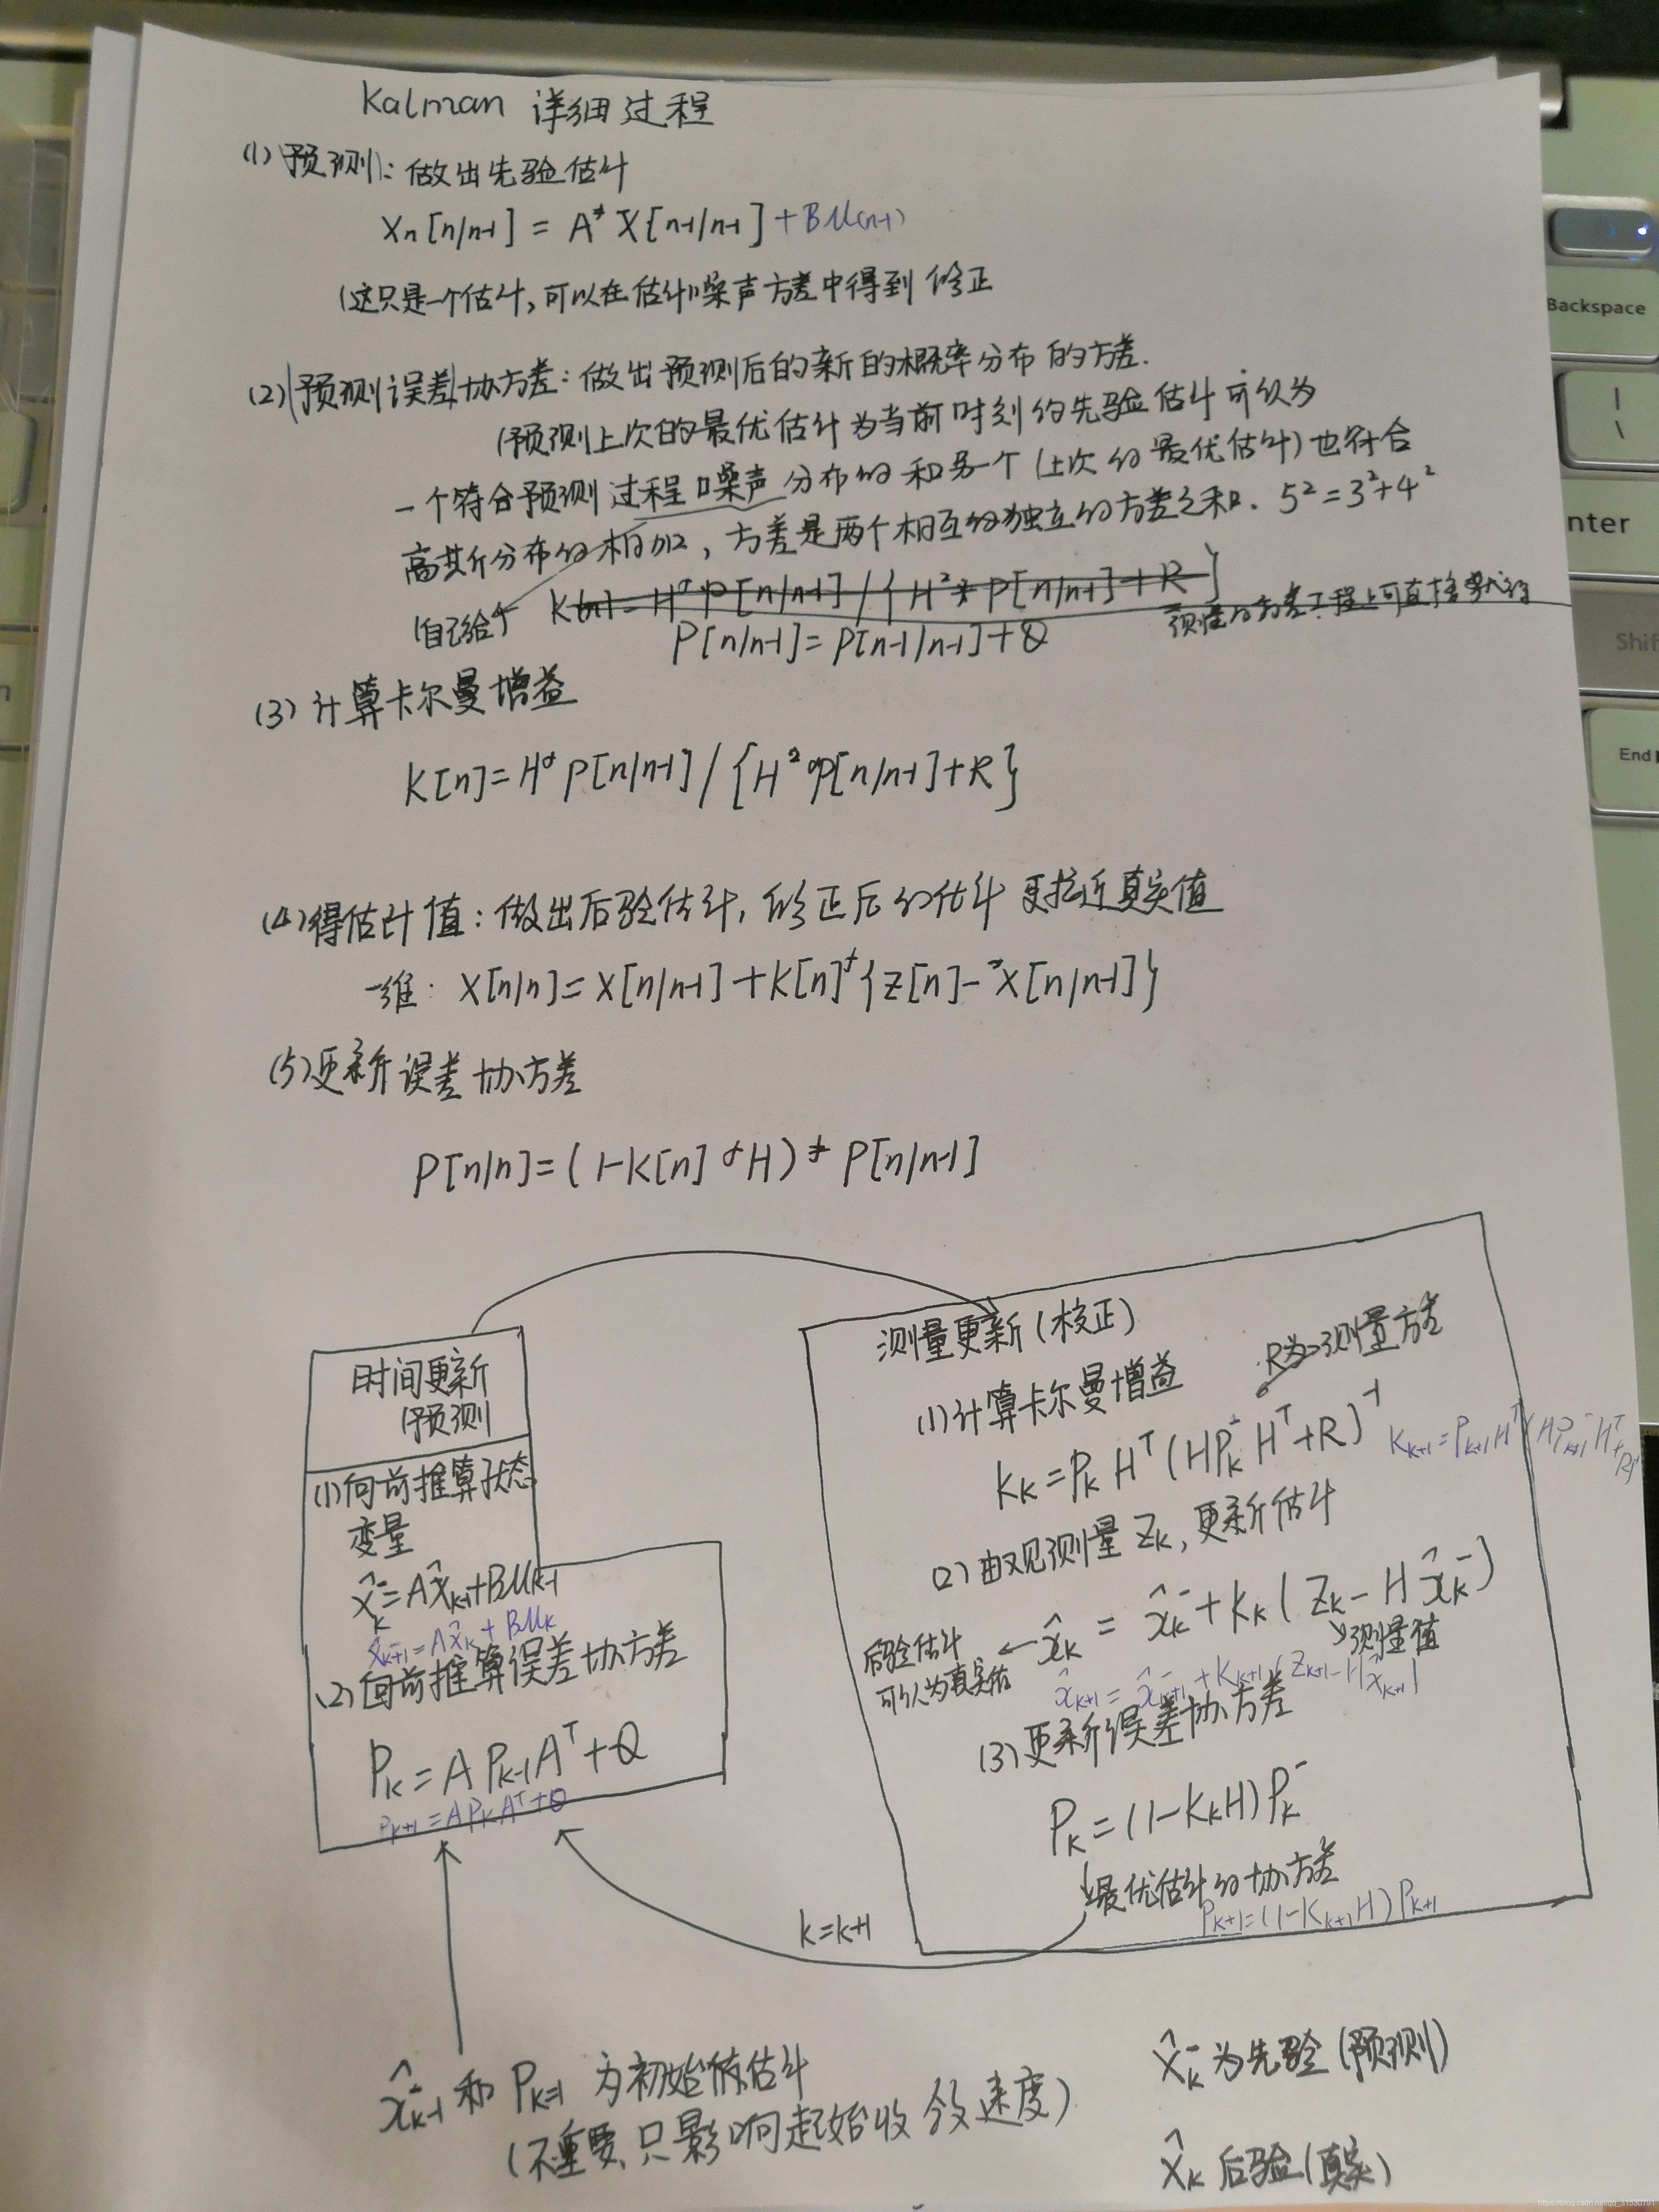 Kalman 详细过程
(1) 预测: 做出先验估计
Xn[n/n-1] = A* X[n-1/n-1] + BU(n-1)
(这只是一个估计, 可以在估计噪声方差中得到修正
(2) 预测误差协方差: 做出预测后的新的概率分布的方差.
(预测上次的最优估计为当前时刻的先验估计可认为
一个符合预测过程噪声分布的和另一个(上次的最优估计)也符合
高斯分布的相加, 方差是两个相互的独立的方差之和. 5²=3²+4²
(自己给个 K(n) = H* P[n/n-1] / {H²* P[n/n-1] + R}
P[n/n-1] = P[n-1/n-1] + Q
(3) 计算卡尔曼增益
K[n] = H* P[n/n-1] / {H²*P[n/n-1]+R}
(4) 得估计值: 做出后验估计, 修正后的估计更接近真实值
一维: X[n/n] = X[n/n-1] + K[n]*{Z[n] - X[n/n-1]}
(5) 更新误差协方差
P[n/n] = (1-K[n]*H) * P[n/n-1]
时间更新
(预测
(1) 向前推算状态
变量
x̂k⁻ = Ax̂k-1 + BUk-1
x̂k+1⁻ = Ax̂k + BUk
(2) 向前推算误差协方差
Pk = A Pk-1 Aᵀ + Q
Pk+1 = A Pk Aᵀ + Q
测量更新 (校正)
R为测量方差
(1) 计算卡尔曼增益
Kk = Pk Hᵀ (HPk⁻ Hᵀ + R)⁻¹
Kk+1 = Pk+1 Hᵀ (HPk+1⁻ Hᵀ + R)⁻¹
(2) 由观测量 Zk, 更新估计
x̂k = x̂k⁻ + Kk (Zk - H x̂k⁻)
后验估计
可认为真实值
测量值
x̂k+1 = x̂k+1⁻ + Kk+1 (Zk+1 - Hx̂k+1⁻)
(3) 更新误差协方差
Pk = (1-KkH) Pk⁻
最优估计的协方差
Pk+1 = (1-Kk+1H) Pk+1
k=k+1
x̂k-1⁻ 和 Pk-1 为初始估计
(不重要, 只影响起始收敛速度)
x̂k⁻ 为先验 (预测)
x̂k 后验 (真实)
Backspace
|
\
nter
Shif
End